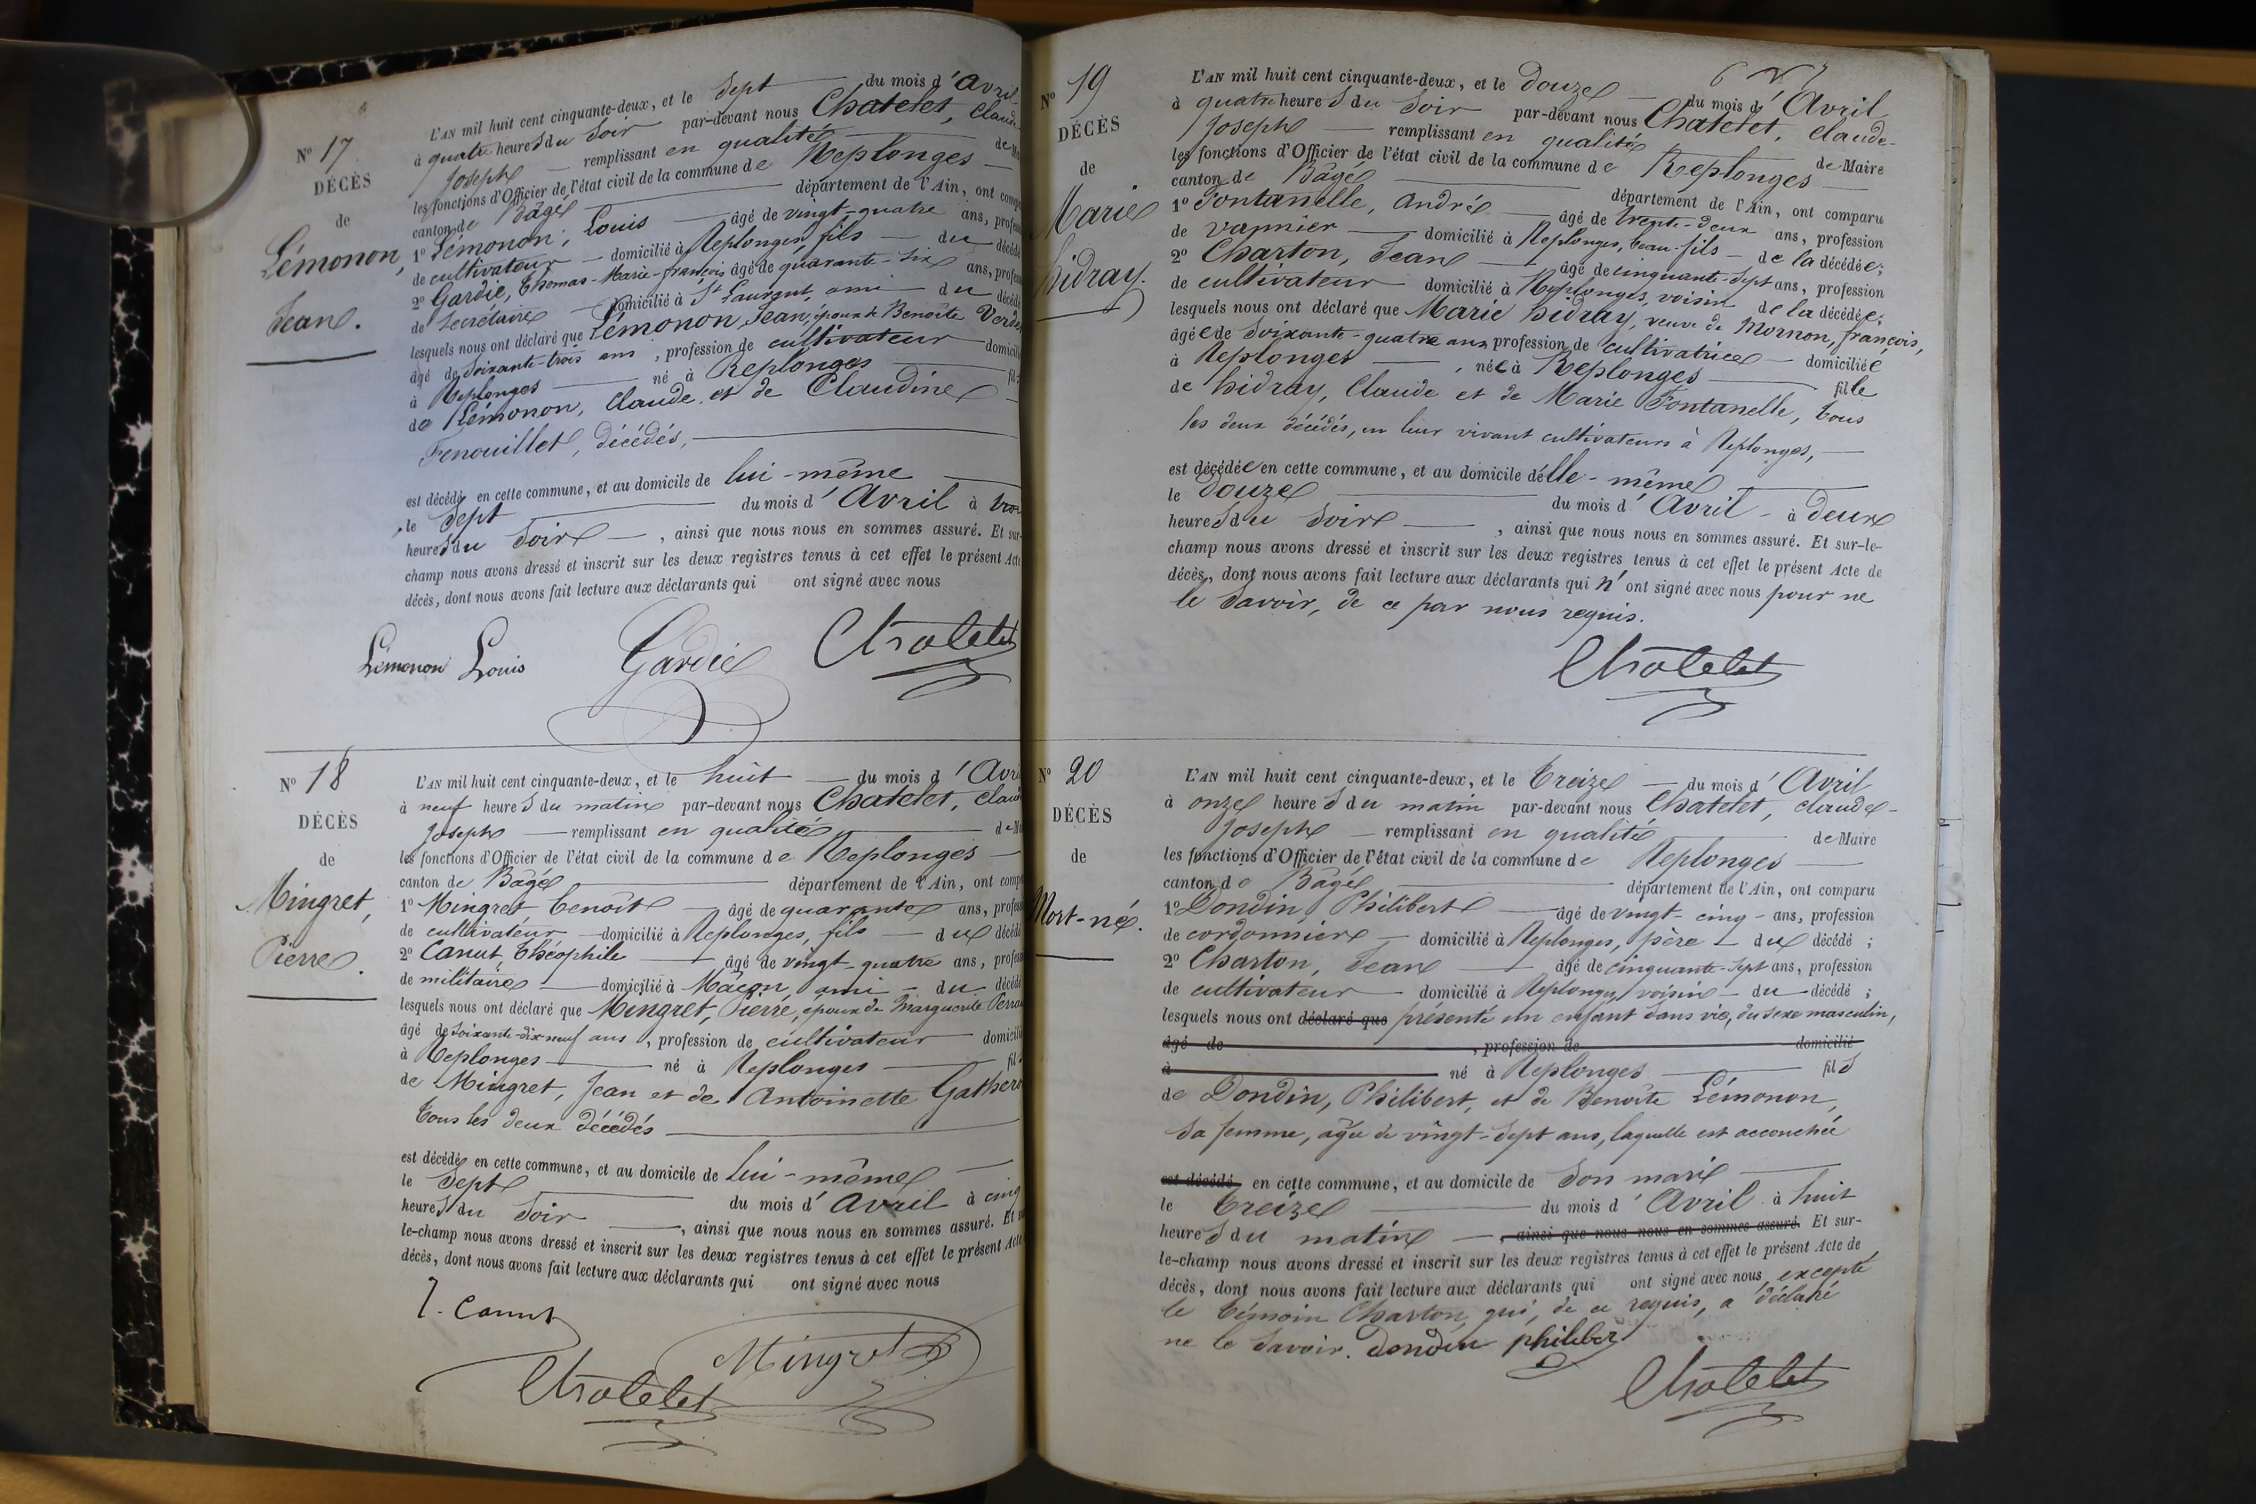 N° 17
DÉCÈS
de
Lémonon,
Jean.
L'AN mil huit cent cinquante-deux, et le Sept du mois d'Avril
à quatre heures du Soir par-devant nous Chatelet, Claude
Joseph remplissant en qualité de
les fonctions d'Officier de l'état civil de la commune de Replonges
canton de Bâgé département de l'Ain, ont
1° Lémonon, Louis âgé de vingt-quatre ans,
de cultivateur domicilié à Replonges, fils du
2° Gardie, Thomas-Marie-françois âgé de quarante-six ans,
de Secrétaire domicilié à St Laurent, ami du
lesquels nous ont déclaré que Lémonon, Jean, époux de Benoîte
âgé de soixante-trois ans, profession de cultivateur
à Replonges né à Replonges
de Lémonon, Claude et de Claudine
Fenouillet, décédés,
est décédé en cette commune, et au domicile de lui-même
le Sept du mois d'Avril à
heures du Soir, ainsi que nous nous en sommes assuré. Et sur-
champ nous avons dressé et inscrit sur les deux registres tenus à cet effet le présent Acte
décès, dont nous avons fait lecture aux déclarants qui ont signé avec nous
Lémonon Louis Gardie Chatelet
N° 18
DÉCÈS
de
Mingret,
Pierre.
L'AN mil huit cent cinquante-deux, et le huit du mois d'
à neuf heures du matin par-devant nous Chatelet,
Joseph remplissant en qualité
les fonctions d'Officier de l'état civil de la commune de Replonges
canton de Bâgé département de l'Ain, ont
1° Mingret benoît âgé de quarante ans,
de cultivateur domicilié à Replonges, fils du
2° Canut, Théophile âgé de vingt-quatre ans,
de militaire domicilié à Mâcon ami du
lesquels nous ont déclaré que Mingret, Pierre, époux de Marguerite
âgé de soixante-dix neuf ans, profession de cultivateur
à Replonges né à Replonges
de Mingret, Jean et de Antoinette
tous les deux décédés
est décédé en cette commune, et au domicile de lui-même
le Sept du mois d'Avril à cinq
heures du Soir, ainsi que nous nous en sommes assuré. Et
le-champ nous avons dressé et inscrit sur les deux registres tenus à cet effet le présent Acte
décès, dont nous avons fait lecture aux déclarants qui ont signé avec nous
T. Canut
Mingret B
Chatelet
N° 19
DÉCÈS
de
Marie
hidray.
L'AN mil huit cent cinquante-deux, et le douze du mois d'Avril
à quatre heures du Soir par-devant nous Chatelet, Claude-
Joseph remplissant en qualité de Maire
les fonctions d'Officier de l'état civil de la commune de Replonges
canton de Bâgé département de l'Ain, ont comparu
1° Fontanelle, André âgé de trente-deux ans, profession
de vannier domicilié à Replonges, beau-fils de la décédée;
2° Charton, Jean âgé de cinquante-sept ans, profession
de cultivateur domicilié à Replonges, voisin de la décédée;
lesquels nous ont déclaré que Marie hidray, veuve de Mornon, françois,
âgée de Soixante-quatre ans profession de cultivatrice domiciliée
à Replonges, née à Replonges fille
de hidray, Claude et de Marie Fontanelle, tous
les deux décédés, en leur vivant cultivateurs à Replonges,
est décédée en cette commune, et au domicile d'elle-même
le douze du mois d'Avril à deux
heures du Soir, ainsi que nous nous en sommes assuré. Et sur-le-
champ nous avons dressé et inscrit sur les deux registres tenus à cet effet le présent Acte de
décès, dont nous avons fait lecture aux déclarants qui n'ont signé avec nous pour ne
le Savoir, de ce par nous requis.
Chatelet
N° 20
DÉCÈS
de
Mort-né.
L'AN mil huit cent cinquante-deux, et le treize du mois d'Avril
à onze heures du matin par-devant nous Chatelet, Claude-
Joseph remplissant en qualité de Maire
les fonctions d'Officier de l'état civil de la commune de Replonges
canton de Bâgé département de l'Ain, ont comparu
1° Dondin, Philibert âgé de vingt-cinq ans, profession
de cordonnier domicilié à Replonges, père du décédé;
2° Charton, Jean âgé de cinquante-sept ans, profession
de cultivateur domicilié à Replonges voisin du décédé;
lesquels nous ont déclaré que présenté un enfant Sans vie, du sexe masculin,
âgé de, profession de domicilié
à né à Replonges fils
de Dondin, Philibert, et de Benoîte Lémonon,
Sa femme, âgée de vingt-sept ans, laquelle est accouchée
est décédé en cette commune, et au domicile de Son mari
le treize du mois d'Avril à huit
heures du matin, ainsi que nous nous en sommes assuré. Et sur-
le-champ nous avons dressé et inscrit sur les deux registres tenus à cet effet le présent Acte de
décès, dont nous avons fait lecture aux déclarants qui ont signé avec nous, excepté
le témoin Charton, qui, de ce requis, a déclaré
ne le Savoir. Dondin philiber
Chatelet